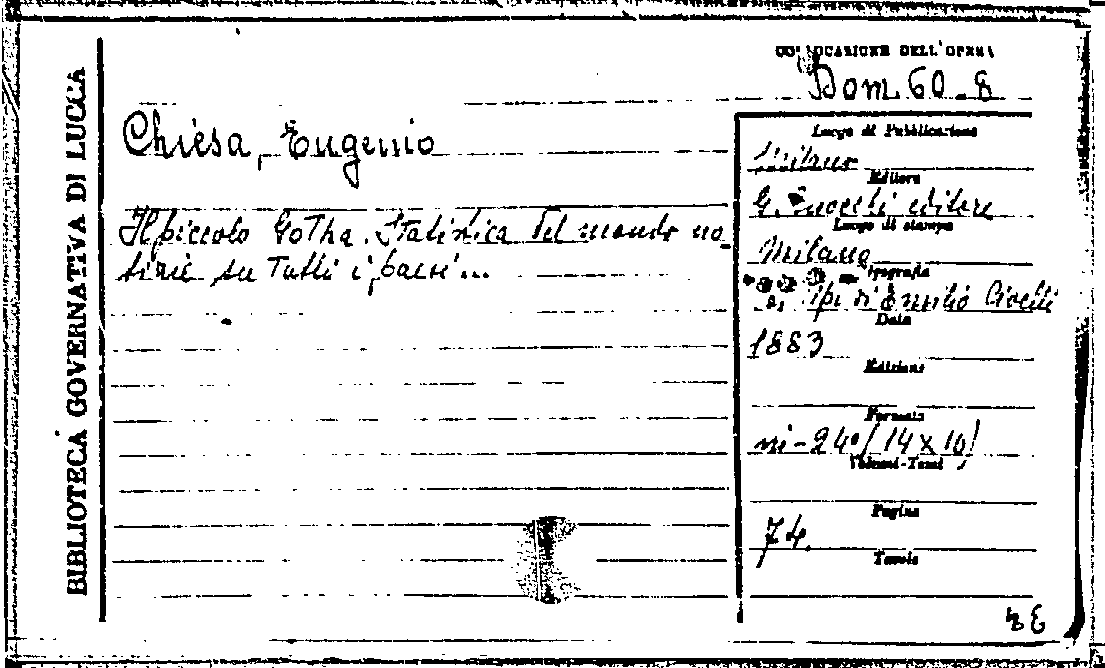 BIBLIOTECA GOVERNATIVA DI LUCCA
COLLOCAZIONE DELL'OPERA
Dom. 60-8
Chiesa, Eugenio
Il piccolo Gotha. Statistica del mondo no-
tizie su Tutti i paesi...
Luogo di Pubblicazione
Milano
Editore
G. editore
Luogo di stampa
Milano
Tipografia
Tipi d'Emilio Civelli
Data
1883
Edizione
Formato
in-24°(14x10)
Volumi-Tomi
Pagine
74.
Tavole